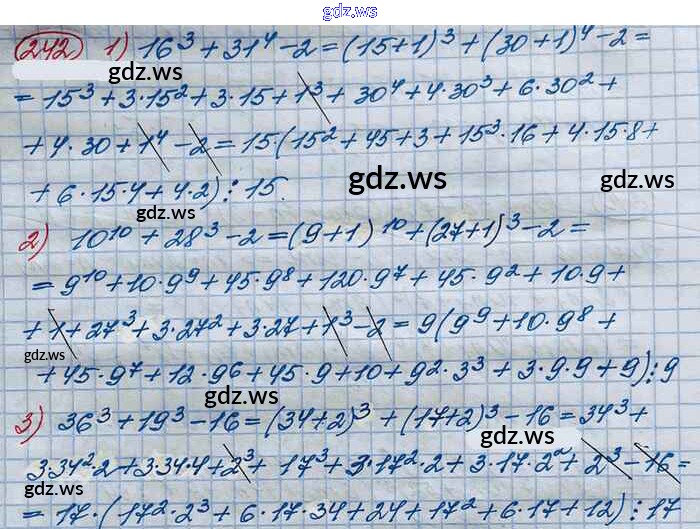 gdz.ws
242) 1) 16³ + 31⁴ - 2 = (15+1)³ + (30+1)⁴ - 2 =
gdz.ws
= 15³ + 3·15² + 3·15 + 1³ + 30⁴ + 4·30³ + 6·30² +
+ 4·30 + 1⁴ - 2 = 15·(15² + 45 + 3 + 15³·16 + 4·15·8 +
+ 6·15·4 + 4·2) ⋮ 15.
gdz.ws gdz.ws
2) 10¹⁰ + 28³ - 2 = (9+1)¹⁰ + (27+1)³ - 2 =
= 9¹⁰ + 10·9⁹ + 45·9⁸ + 120·9⁷ + 45·9² + 10·9 +
+ 1 + 27³ + 3·27² + 3·27 + 1³ - 2 = 9(9⁹ + 10·9⁸ +
gdz.ws
+ 45·9⁷ + 12·9⁶ + 45·9 + 10 + 9²·3³ + 3·9·9 + 9) ⋮ 9
gdz.ws
3) 36³ + 19³ - 16 = (34+2)³ + (17+2)³ - 16 = 34³ +
gdz.ws
3·34²·2 + 3·34·4 + 2³ + 17³ + 3·17²·2 + 3·17·2² + 2³ - 16 =
= 17·(17²·2³ + 6·17·34 + 24 + 17² + 6·17 + 12) ⋮ 17
gdz.ws